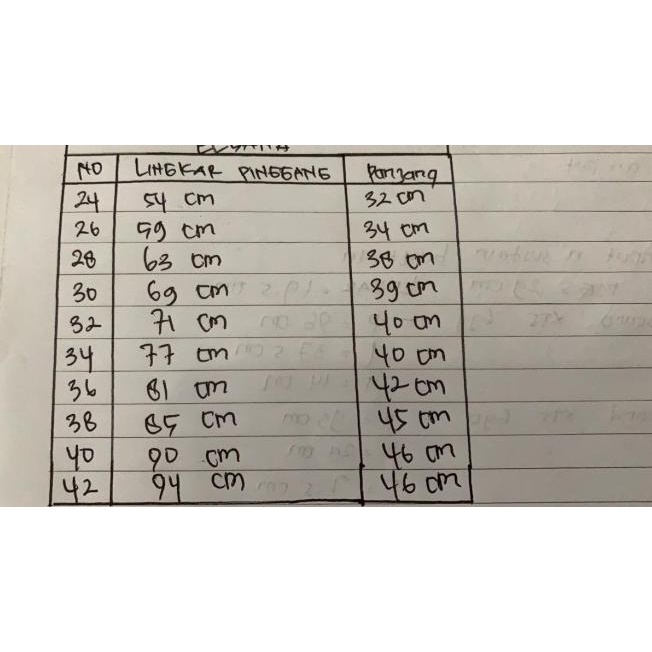 NO LINGKAR PINGGANG Panjang
24 54 cm 32 cm
26 59 cm 34 cm
28 63 cm 38 cm
30 69 cm 39 cm
32 71 cm 40 cm
34 77 cm 40 cm
36 81 cm 42 cm
38 85 cm 45 cm
40 90 cm 46 cm
42 94 cm 46 cm